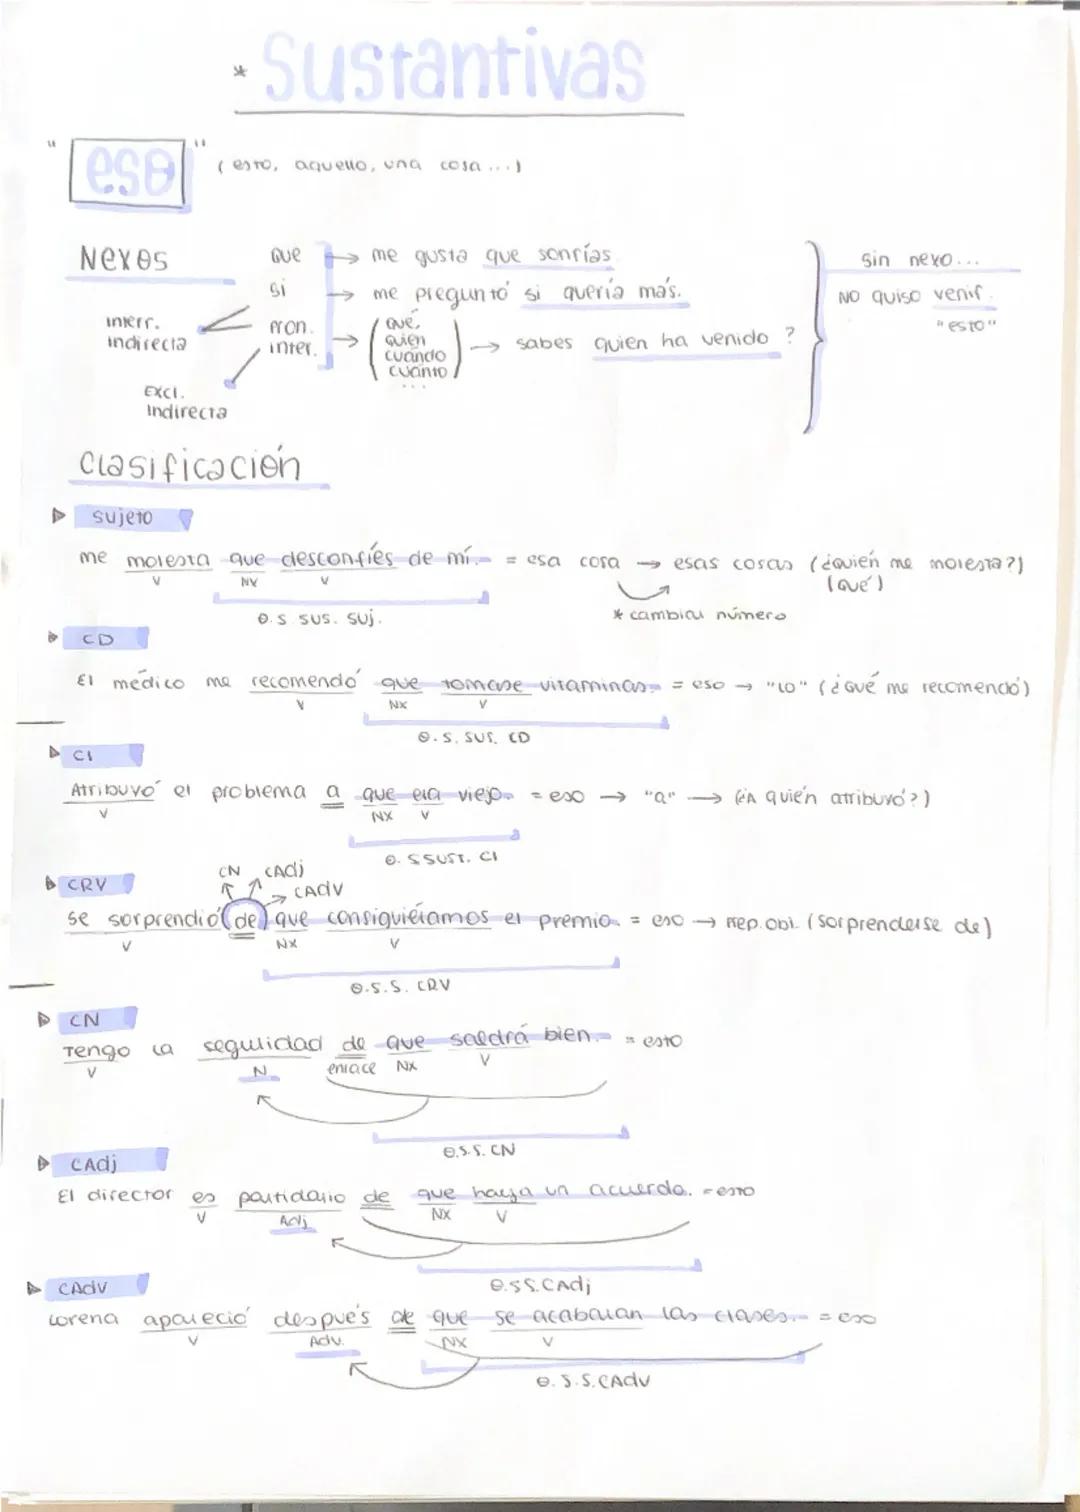 * Sustantivas
"eso" (esto, aquello, una cosa...)
Nexos
que → me gusta que sonrías.
si → me preguntó si quería más.
interr. indirecta
pron. inter. → (qué, quien cuándo cuánto ...) → sabes quien ha venido ?
Excl. Indirecta
sin nexo...
NO quiso venir.
"esto"
Clasificación
▷ sujeto
me molesta que desconfíes de mí. = esa cosa → esas cosas (¿quién me molesta?)
(qué)
V NX V
* cambiar número
O.S SUS. SUJ.
▷ CD
El médico me recomendó que tomase vitaminas. = eso → "lo" (¿Qué me recomendó)
V NX V
O.S. SUS. CD
▷ CI
Atribuyó el problema a que era viejo. = eso → "a" → (¿A quién atribuyó?)
V NX V
O. S SUST. CI
▷ CRV
CN CAdj CAdv
se sorprendió de que consiguiéramos el premio. = eso → Prep. Obl. (sorprenderse de)
V NX V
O.S.S. CRV
▷ CN
Tengo la seguridad de que saldrá bien. = esto
V N enlace NX V
O.S.S. CN
▷ CAdj
El director es partidario de que haya un acuerdo. = esto
V Adj NX V
O.SS.CAdj
▷ CAdv
Lorena apareció después de que se acabaran las clases. = eso
V Adv. NX V
O.S.S.CAdv